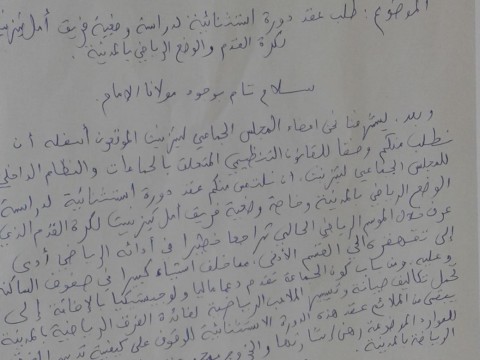 الموضوع: طلب عقد دورة استثنائية لدراسة وضعية فريق أمل تيزنيت
لكرة القدم والوضع الرياضي بالمدينة.
سلام تام بوجود مولانا الإمام.
وبعد، يشرفنا نحن أعضاء المجلس الجماعي لتيزنيت الموقعون أسفله أن
نطلب منكم وفقا للقانون التنظيمي المتعلق بالجماعات والنظام الداخلي
للمجلس الجماعي لتيزنيت، ان نلتمس منكم عقد دورة استثنائية لدراسة
الوضع الرياضي بالمدينة وخاصة وضعية فريق امل تيزنيت لكرة القدم الذي
عرف خلال الموسم الرياضي الحالي تراجعا خطيرا في أدائه الرياضي أدى
إلى تقهقره إلى القسم الأدنى، مما خلف استياء كبيرا في صفوف الساكنة
وعليه، وحيث كون الجماعة تقدم دعما ماليا ولوجيستيكيا بالإضافة إلى
تحمل تكاليف صيانة وتسيير الملاعب الرياضية لفائدة الفرق الرياضية بالمدينة
عقد هذه الدورة الاستثنائية للوقوف على كيفية تدبير
للموارد الموضوعة رهن إشارتها
الرياضية بالمدينة.